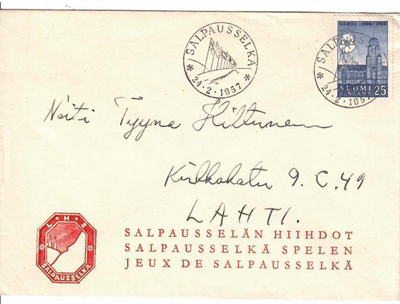 SALPAUSSELKÄ
24-2-1957
LAHTI 1905-1955
SALPAUSSELKÄ
24-2-1957
SUOMI 25
FINLAND
Neiti Tyyne Hiltunen
Kirkkokatu 9. C. 49
LAHTI.
L·H·S
SALPAUSSELKÄ
SALPAUSSELÄN HIIHDOT
SALPAUSSELKÄ SPELEN
JEUX DE SALPAUSSELKÄ